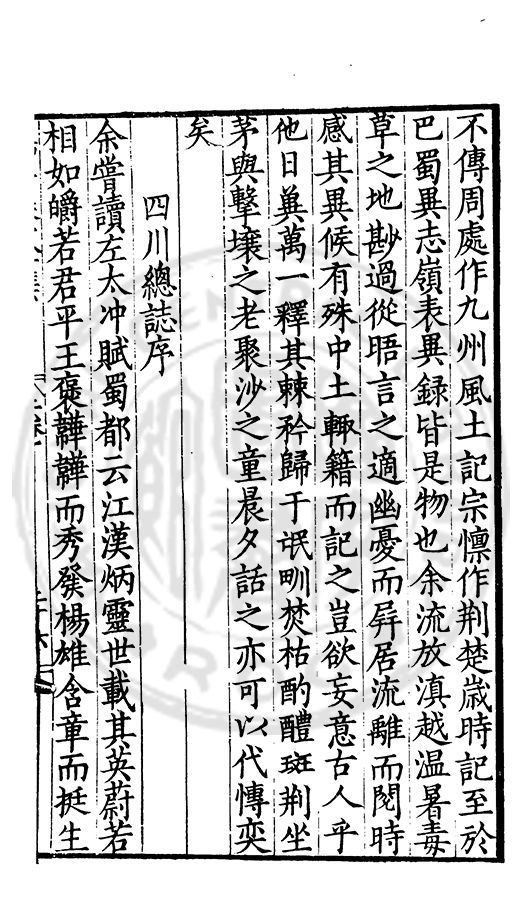 不傳周處作九州風土記宗懔作荆楚歲時記至於
巴蜀異志嶺表異録皆是物也余流放滇越温暑毒
草之地尠過從晤言之適幽憂而屏居流離而閱時
感其異候有殊中土輙籍而記之豈欲妄意古人乎
他日冀萬一釋其棘矜歸于氓甽焚枯酌醴斑荆坐
茅與擊壤之老聚沙之童晨夕話之亦可以代慱奕
矣
四川總誌序
余嘗讀左太冲賦蜀都云江漢炳靈世載其英蔚若
相如皭若君平王褒韡韡而秀發楊雄含章而挺生